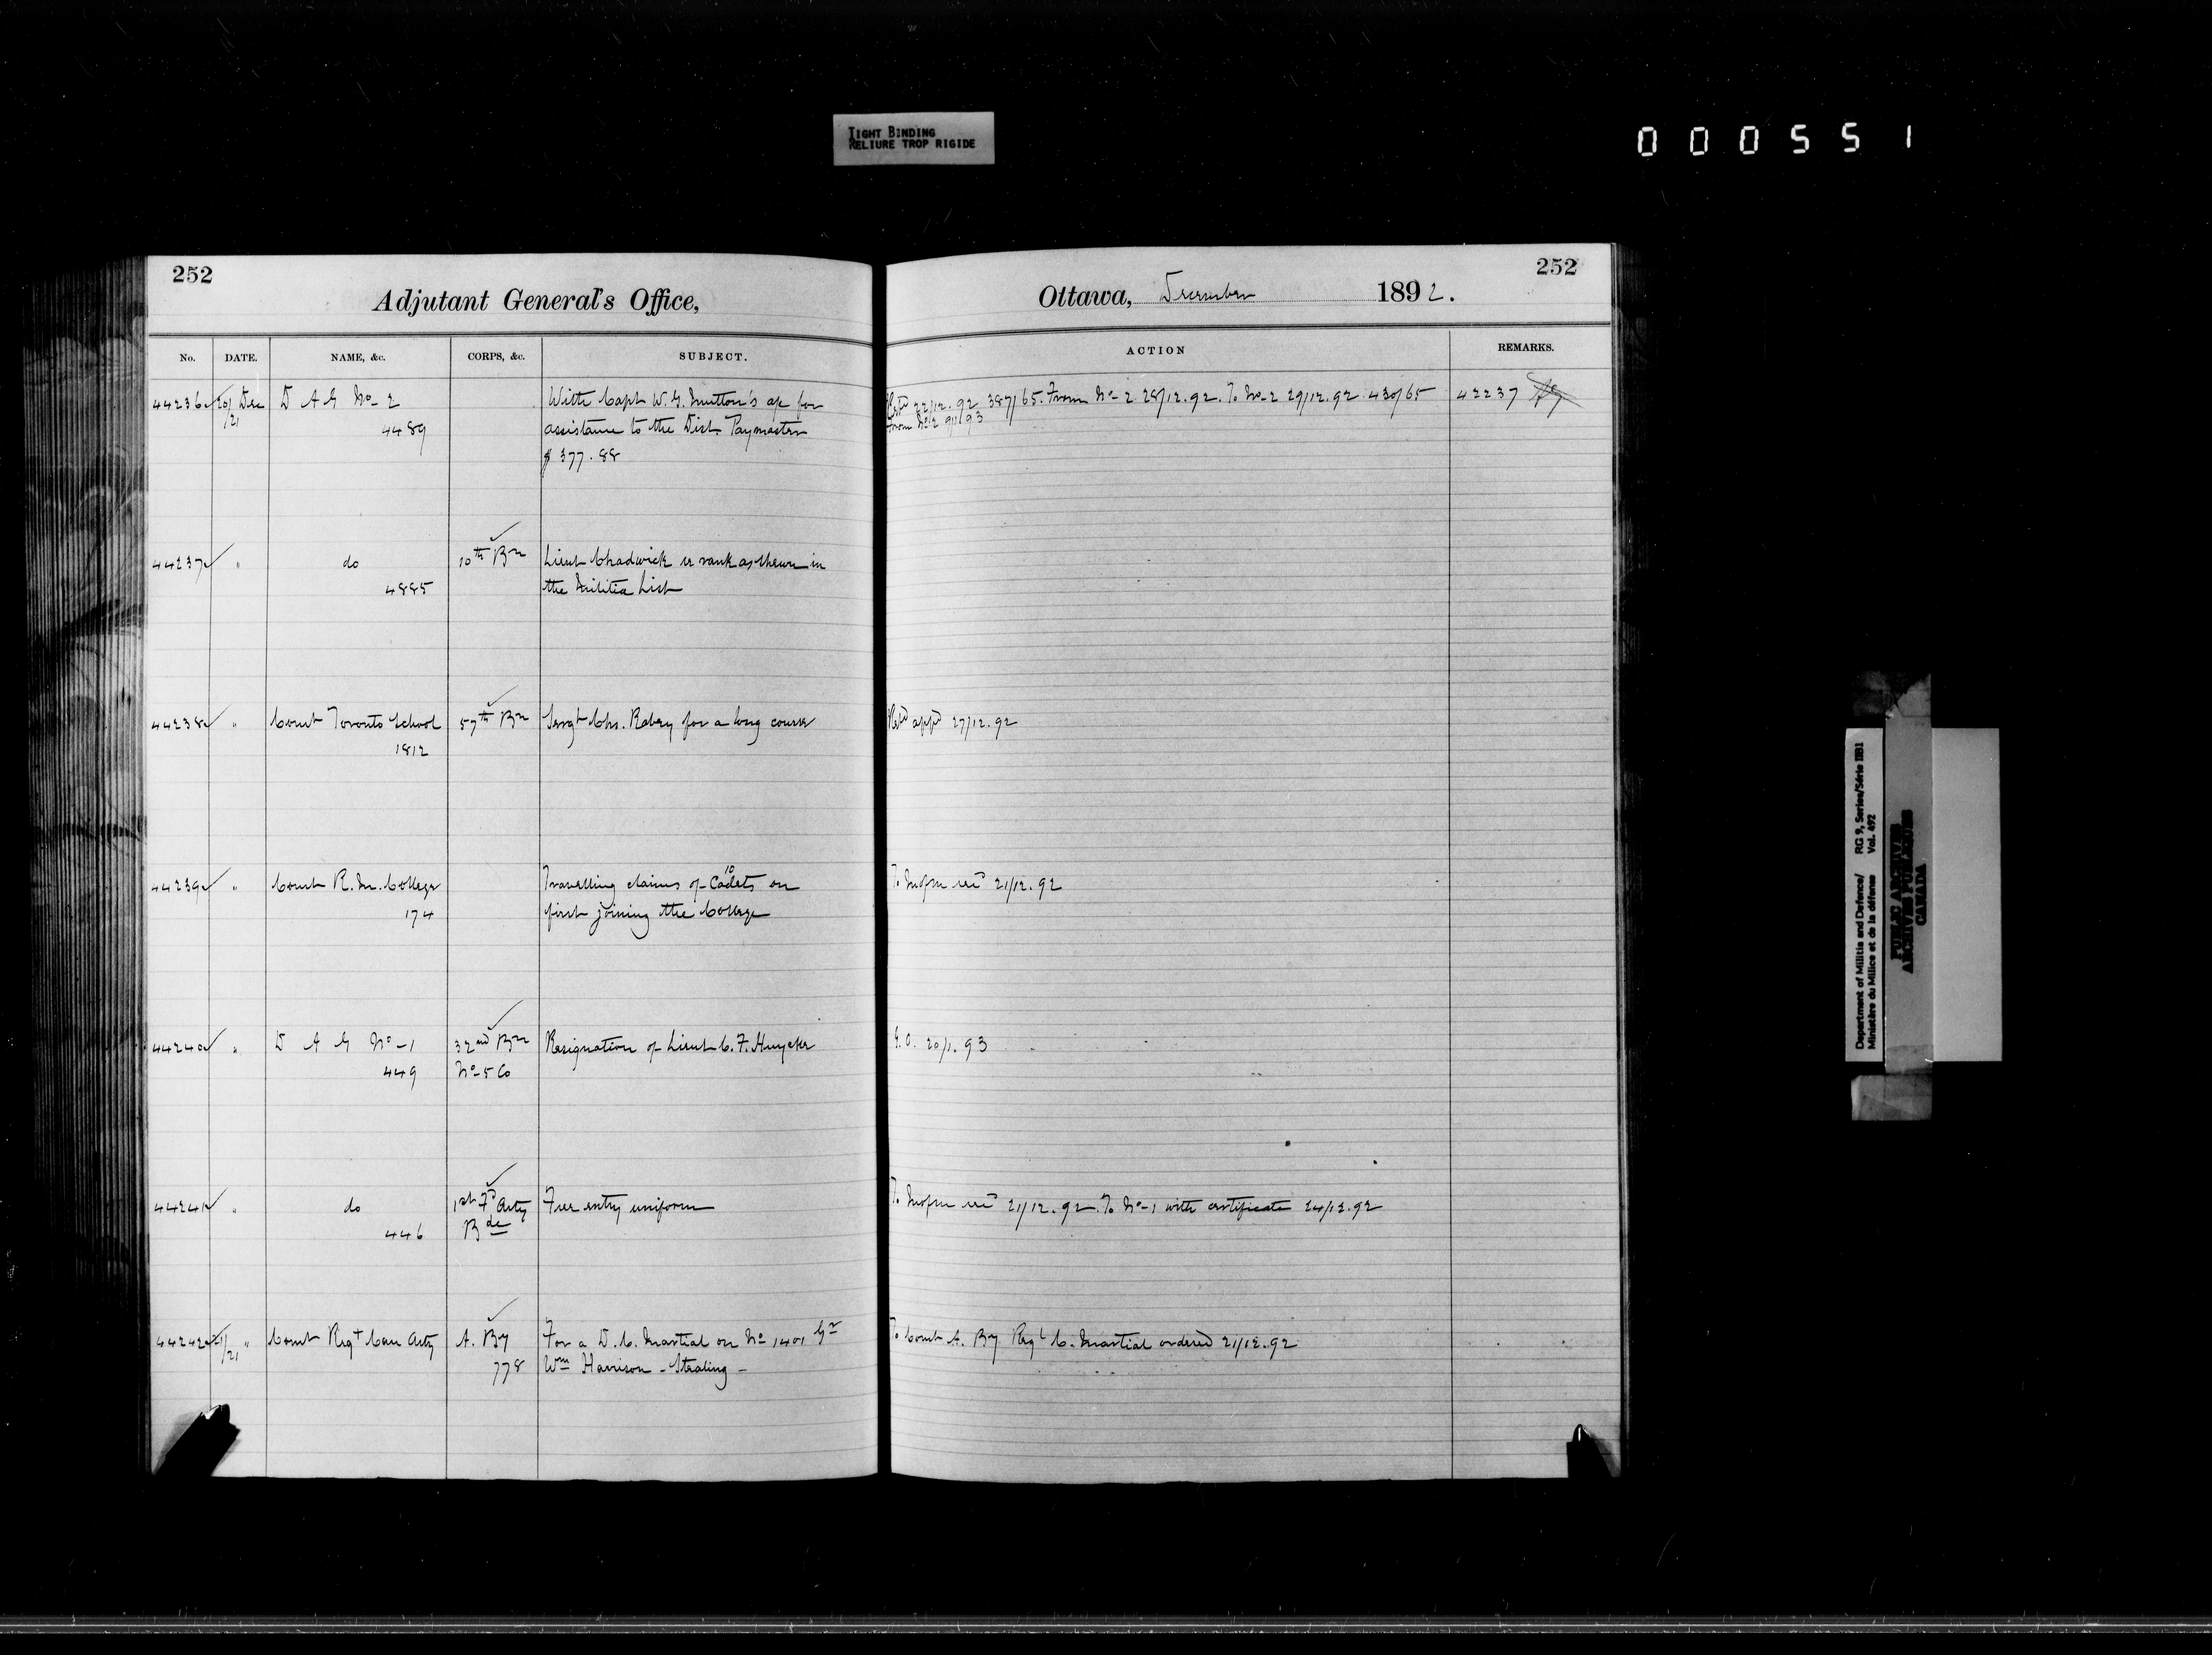 TIGHT BINDING
RELIURE TROP RIGIDE
000551
252
Adjutant General's Office,
No. DATE. NAME, &c. CORPS, &c. SUBJECT.
44236 20/21 Dec D A G No- 2 With Capt W. G. Mutton's a/c for
4489 assistance to the Dist. Paymaster
$ 377.88
44237 " do 10th Bn Lieut Chadwick re rank as shewn in
4885 the Militia List
44238 " Comt Toronto School 57th Bn Sergt Chs. for a long course
1812
44239 " Comt R. M. College Travelling claims of 10 Cadets on
174 first joining the College
44240 " D A G No-1 32nd Bn Resignation of Lieut C. F.
449 No-5 Co
44241 " do 1st Fd Arty Free entry uniform
446 Bde
44242 21/21 " Comt Regt Can Arty A. By For a D. C. Martial on No 1401 Gr
778 Wm Harrison - Stealing -
252
Ottawa, December 1892.
ACTION REMARKS.
22/12.92 387/65. From No-2 28/12.92. To No-2 29/12.92 430/65 42237
From No 2 9/1/93
appd 27/12.92
To 21/12.92
G.O. 20/1.93
To 21/12.92. To No-1 with certificate 24/12.92
To Comt A. By Regl C. Martial ordered 21/12.92
Department of Militia and Defence/ RG 9, Series/Série IIB1
Ministère du Milice et de la défense Vol. 492
PUBLIC ARCHIVES
ARCHIVES PUBLIQUES
CANADA